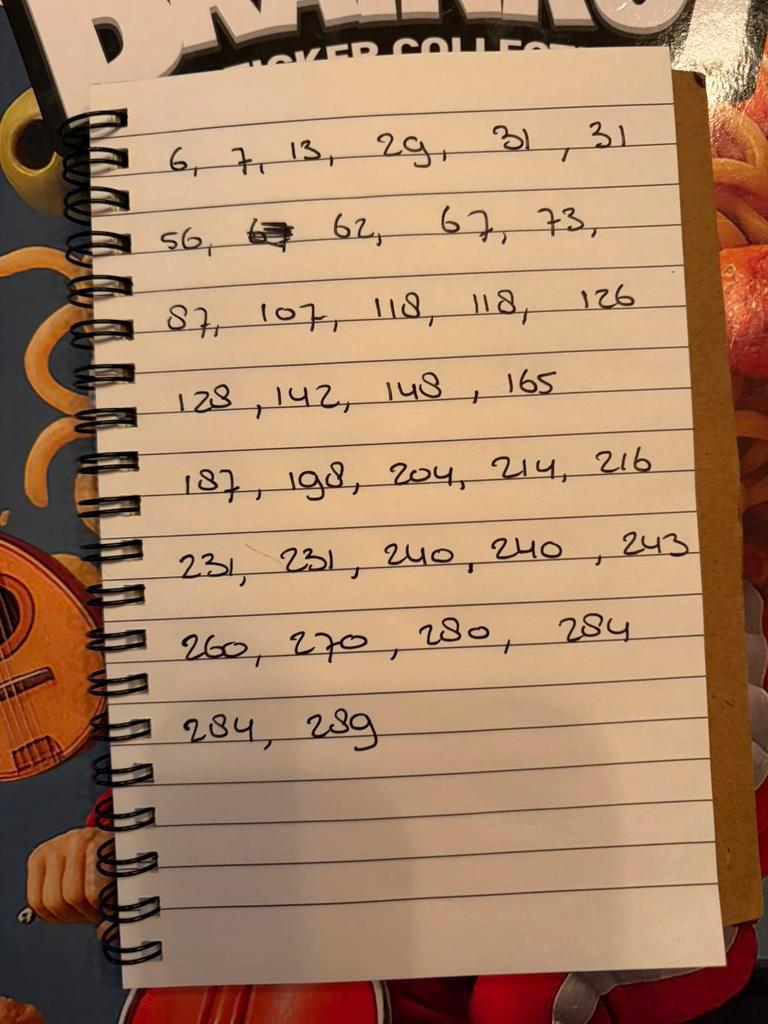 STICKER COLLECT
6, 7, 13, 29, 31, 31
56, 62, 67, 73,
87, 107, 118, 118, 126
128, 142, 148, 165
187, 198, 204, 214, 216
231, 231, 240, 240, 243
260, 270, 280, 284
284, 289